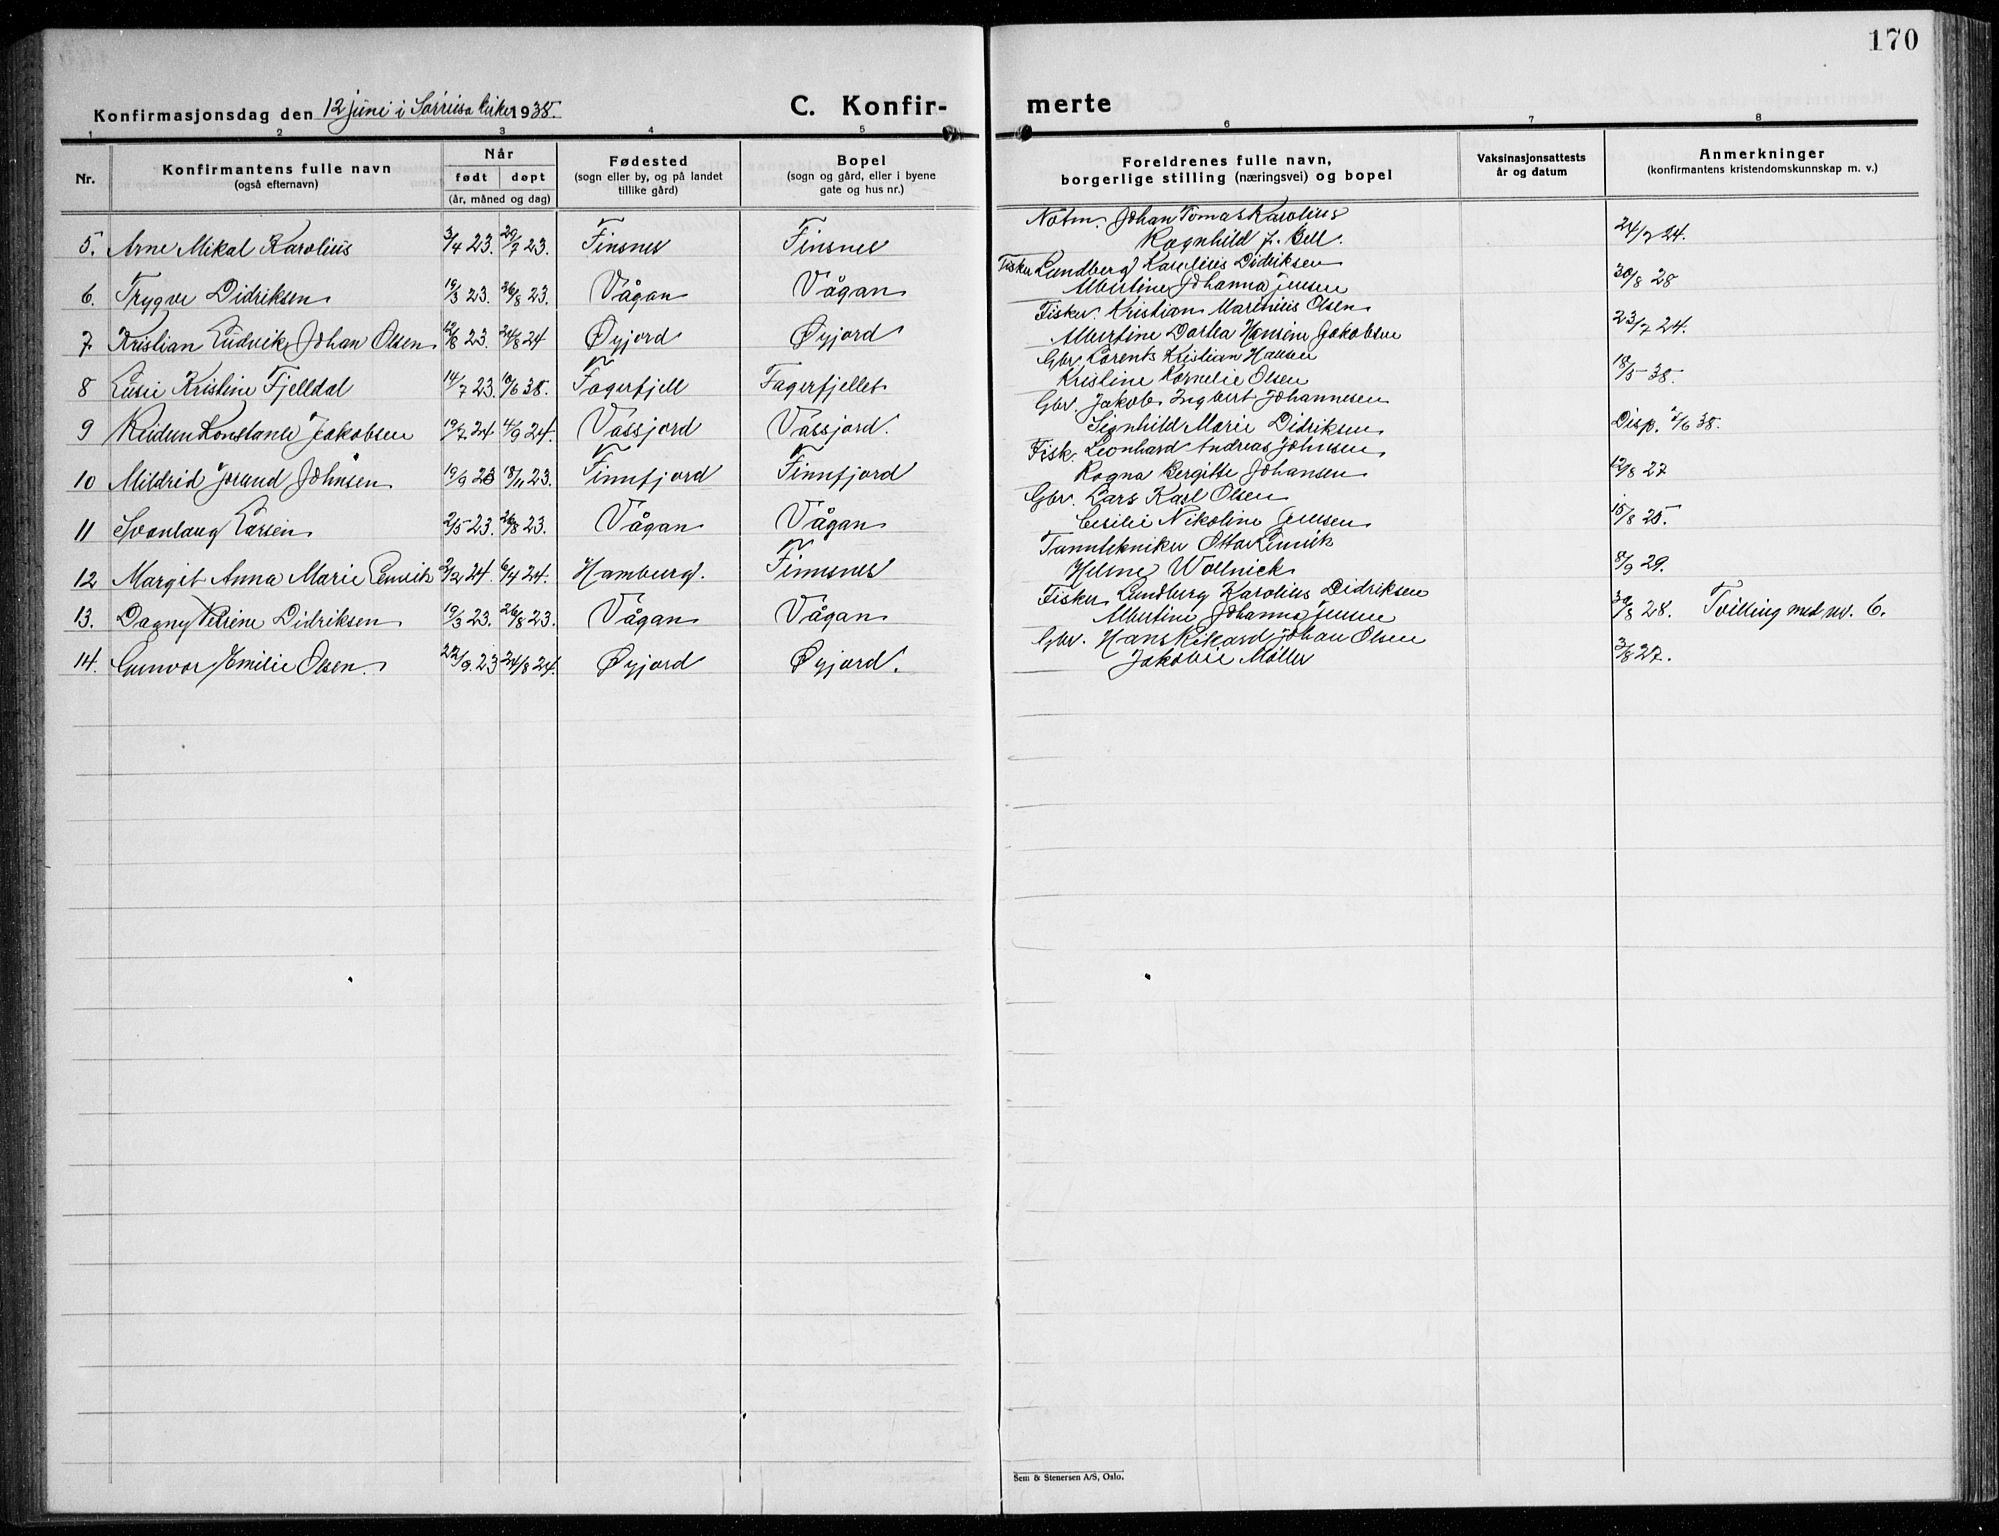 170
Konfirmasjonsdag den 12 juni i Sørreisa kirke 1938.
C. Konfir-
merte
1 2 3 4 5 6 7 8
Nr.
Konfirmantens fulle navn
(også efternavn)
Når
født døpt
(år, måned og dag)
Fødested
(sogn eller by, og på landet
tillike gård)
Bopel
(sogn og gård, eller i byene
gate og hus nr.)
Foreldrenes fulle navn,
borgerlige stilling (næringsvei) og bopel
Vaksinasjonsattests
år og datum
Anmerkninger
(konfirmantens kristendomskunnskap m. v.)
5. Arne Mikal Karolius 3/4 23. 29/7 23. Finsnes Finsnes
Notm. Johan Tomas Karolius
Ragnhild f. Bell. 24/7 24.
6. Trygve Didriksen 19/3 23. 26/8 23. Vågan Vågan
Fisker Lundberg Karolius Didriksen
Albertine Johanna Jensen 30/8 28
7 Kristian Ludvik Johan Olsen 12/8 23. 24/8 24 Øyjord Øyjord
Fisker. Kristian Marinius Olsen
Albertine Dortea Hansine Jakobsen 23/7 24.
8 Lusie Kristine Fjelldal 14/7 23. 10/6 38. Fagerfjell Fagerfjellet
Gbr. Lorents Kristian Hansen
Kristine Kornelie Olsen 18/5 38.
9 Reidun Konstanse Jakobsen 19/7 24. 14/9 24. Vassjord Vassjord.
Gbr. Jakob Ingbert Johannesen
Signhild Marie Didriksen Disp. 2/6 38.
10 Mildrid Jorund Johnsen 19/9 23 18/11 23. Finnfjord Finnfjord
Fisk. Leonhard Andreas Johnsen
Ragna Bergitte Johansen 12/8 27
11 Svanlaug Larsen 2/5 23. 26/8 23. Vågan Vågan
Gbr. Lars Karl Olsen
Cesilie Nikoline Jensen 15/8 25.
12 Margit Anna Marie Lenvik 2/2 24. 6/4 24. Hamburg. Finnsnes
Tanntekniker Otto Lenvik
Helene Wollnick 8/9 29.
13. Dagny Petrine Didriksen 19/3 23. 26/8 23. Vågan Vågan
Fisker Lundberg Karolius Didriksen
Albertine Johanna Jensen 30/8 28. Tvilling med nr. 6.
14. Gunvor Emilie Olsen. 22/9. 23 24/8 24. Øyjord Øyjord.
Gbr. Hans Rikard Johan Olsen
Jakobie Møller 3/8 27.
Sem & Stenersen A/S, Oslo.